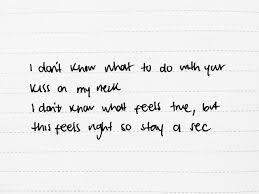 I don't know what to do with your
kiss on my neck
I don't know what feels true, but
this feels right so stay a sec